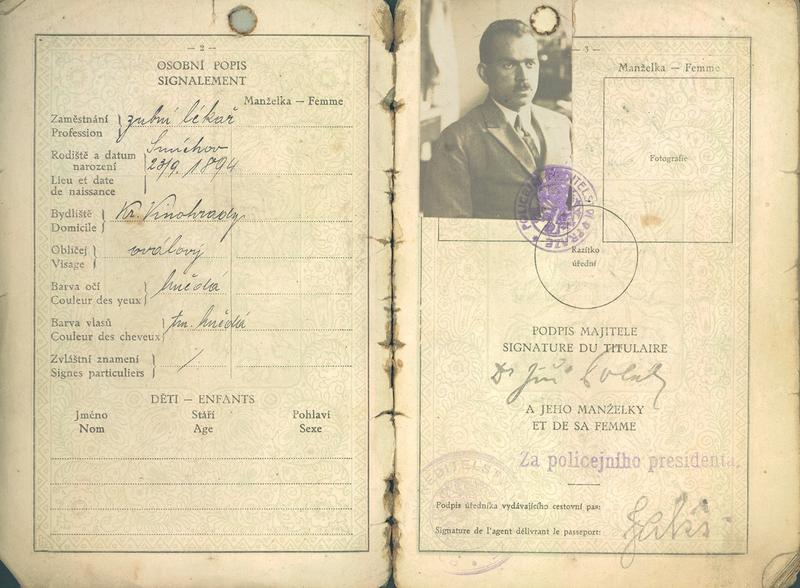 — 2 —
OSOBNÍ POPIS
SIGNALEMENT
Manželka — Femme
Zaměstnání
Profession
zubní lékař
Rodiště a datum
narození
Lieu et date
de naissance
Smíchov
23/9. 1894
Bydliště
Domicile
Kr. Vinohrady
Obličej
Visage
oválový
Barva očí
Couleur des yeux
hnědá
Barva vlasů
Couleur des cheveux
tm. hnědá
Zvláštní znamení
Signes particuliers
/
DĚTI — ENFANTS
Jméno Stáří Pohlaví
Nom Age Sexe
3 —
Manželka — Femme
Fotografie
POLICEJNÍ ŘEDITELSTVÍ V PRAZE
Razítko
úřední
PODPIS MAJITELE
SIGNATURE DU TITULAIRE
Dr Jiří
A JEHO MANŽELKY
ET DE SA FEMME
ŘEDITELST
Za policejního presidenta.
Podpis úředníka vydávajícího cestovní pas:
Signature de l'agent délivrant le passeport: